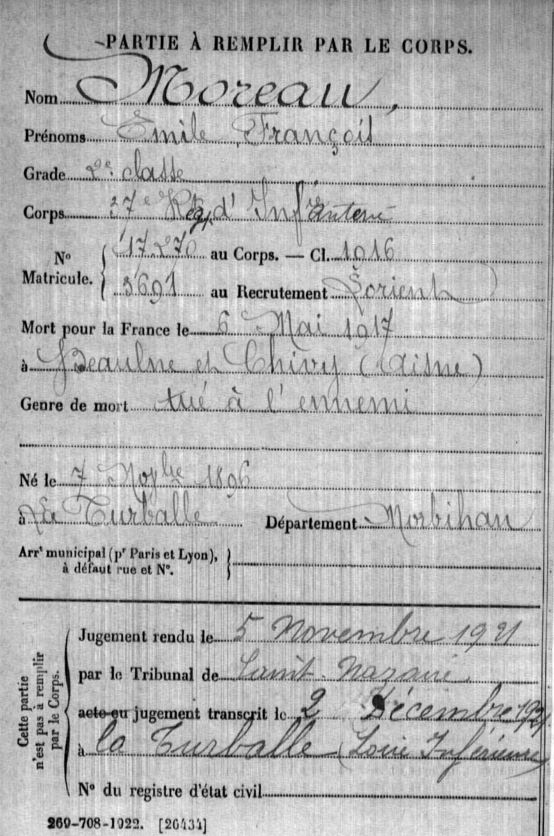 PARTIE À REMPLIR PAR LE CORPS.
Nom Moreau,
Prénoms Emile François
Grade 2e classe
Corps 37e Rég d'Infanterie
No Matricule. 17270 au Corps. — Cl. 1916
3691 au Recrutement Lorient
Mort pour la France le 6 Mai 1917
à Beaulne et Chivy (Aisne)
Genre de mort tué à l'ennemi
Né le 7 Novbre 1896
à La Turballe Département Morbihan
Arrt municipal (pr Paris et Lyon),
à défaut rue et No.
Cette partie n'est pas à remplir par le Corps.
Jugement rendu le 5 Novembre 1921
par le Tribunal de Saint-Nazaire
acte ou jugement transcrit le 2 Décembre 1921
à la Turballe (Loire Inférieure)
No du registre d'état civil
269-708-1922. [26434]